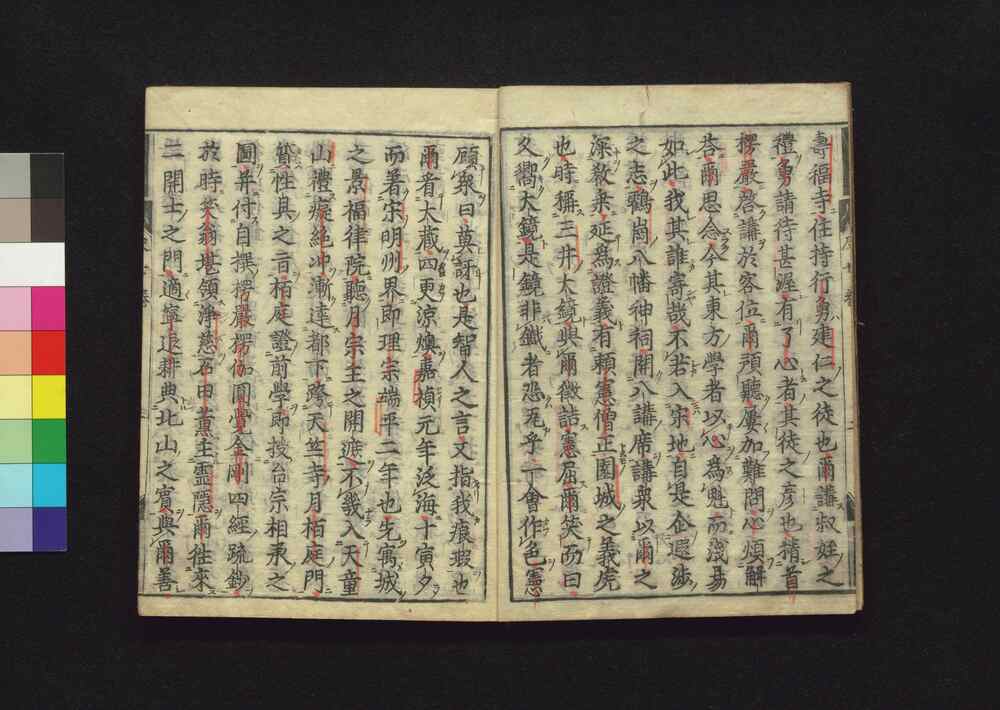 壽福寺住持行勇建仁之徒也爾講敍姪之
禮勇請待甚渥有了心者其徒之彦也㨗首
楞嚴啓講於客位爾預聽屢加難問心煩解
荅爾思念今其東方學者以心爲魁而淺易
如此我其誰寄哉不若入宋地自是企遐渉
之志鶴岡八幡神祠開八講席講衆以爾之
深敎乘延爲證義有賴憲僧正園城之義虎
也時稱三井大鏡與爾徴詰憲屈爾笑而曰
久嚮大鏡是鏡非鐵者恐无乎一會作色憲
顧衆曰莫訝也是智人之言文指我痕瑕也
爾看大藏四更涼燠嘉禎元年泛海十寅夕
而著宋明州界即理宗端平二年也先寓城
之景福律院聽月宗主之開遮不幾入天童
山禮癡絶冲漸達都下跨天竺寺月栢庭門
質性具之旨栢庭證前學即授台宗相承之
圖并付自撰楞嚴楞伽圓覺金剛四經疏鈔
於時笑翁堪領淨慈石田薫主靈隱爾徃來
二開士之門適寧退耕典北山之賓與爾善